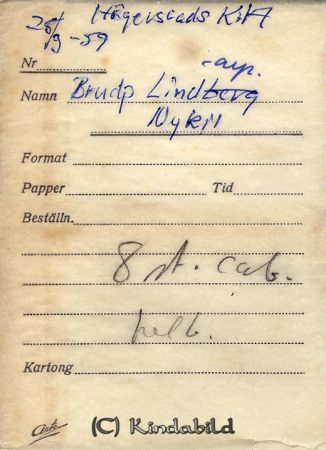 28/3-59 Högerstads K:A
Nr
Namn Brudp Lindberg
Nykil
Format
Papper Tid
Beställn.
8 st. cab.
helb.
Kartong
(C) Kindabild